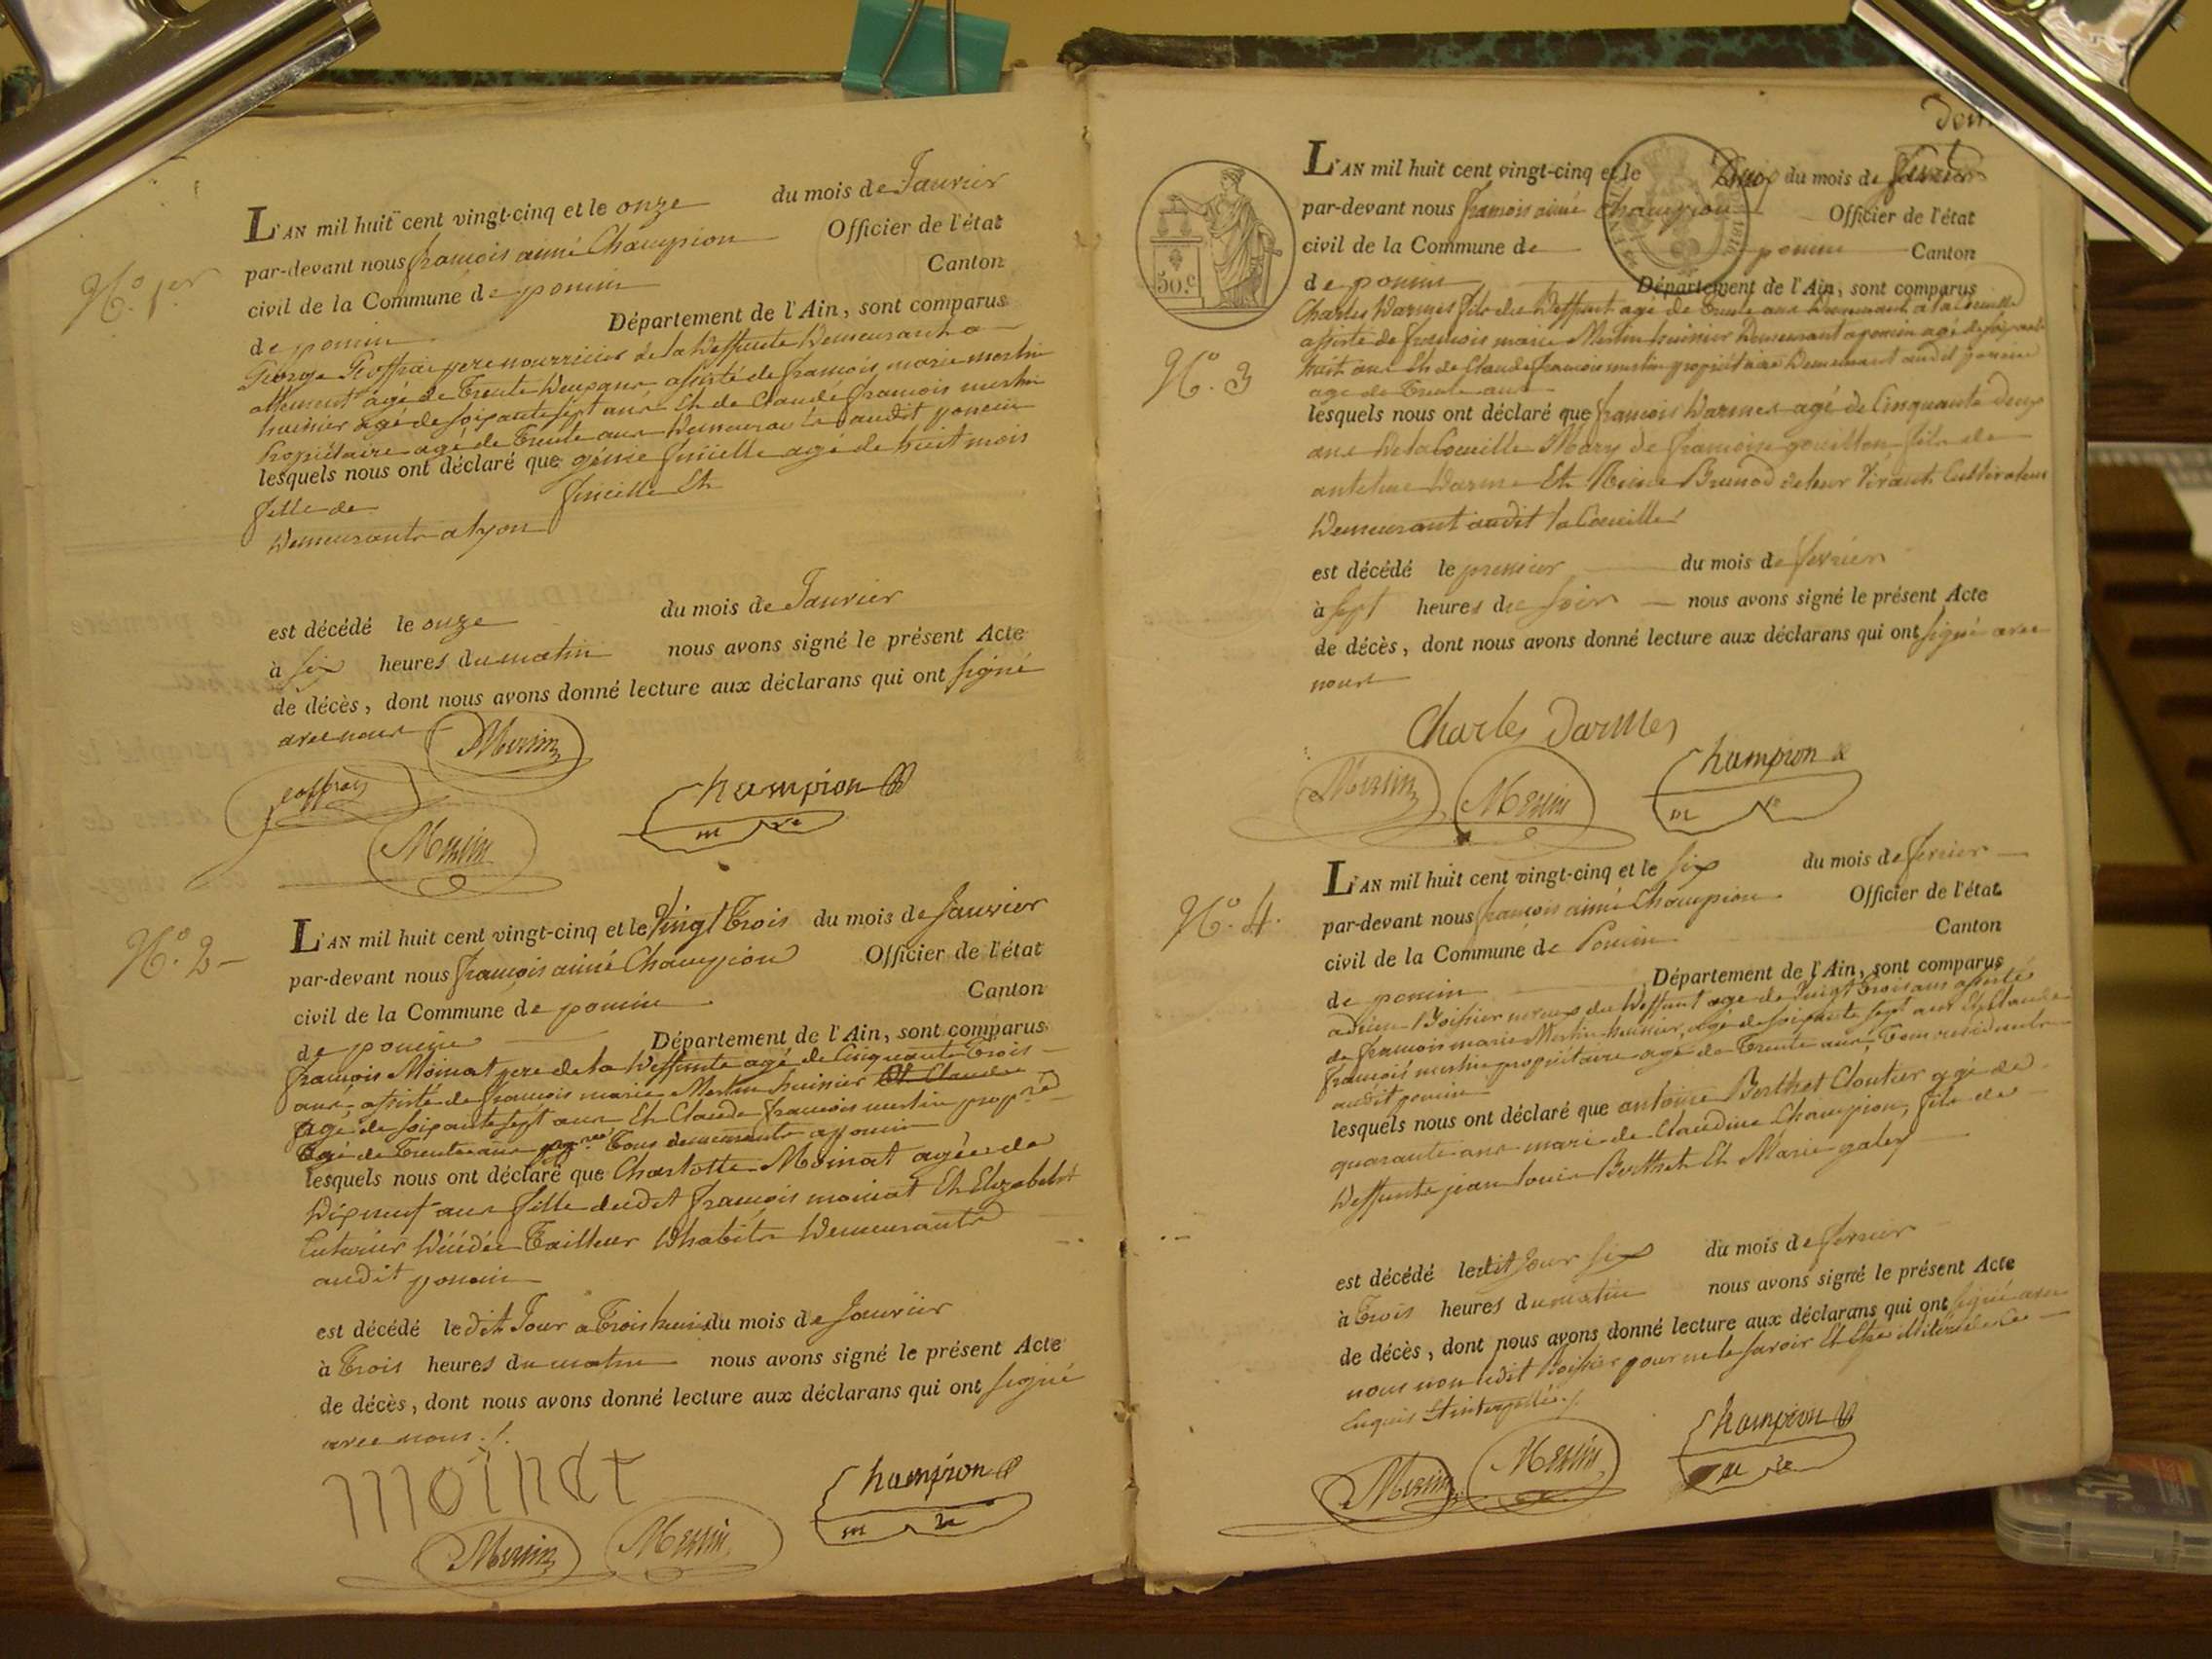 N.o 1.er
L'AN mil huit cent vingt-cinq et le onze du mois de Janvier
par-devant nous françois aimé Champion Officier de l'état
civil de la Commune de poncin Canton
de poncin Département de l'Ain, sont comparus
George Geoffrai pere nourricier de la deffunte demeurant a
agé de trente deux ans, assisté de françois marie mersin
huissier agé de soixante sept ans Et de Claude françois mersin
propriétaire agé de trente ans demeurants audit poncin
lesquels nous ont déclaré que génie agé de huit mois
fille de Et
demeurants a lyon
est décédé le onze du mois de Janvier
à six heures du matin nous avons signé le présent Acte
de décès, dont nous avons donné lecture aux déclarans qui ont signé
avec nous
Mersin
geoffray
Champion
Mersin
m re
N.o 2
L'AN mil huit cent vingt-cinq et le vingt trois du mois de Janvier
par-devant nous françois aimé Champion Officier de l'état
civil de la Commune de poncin Canton
de poncin Département de l'Ain, sont comparus
françois Moinat pere de la deffunte agé de Cinquante trois
ans, assisté de françois marie Mersin huissier Et Claude
agé de soixante sept ans Et Claude françois mersin prop.re
agé de trente ans tous demeurants a poncin
lesquels nous ont déclaré que Charlotte Moinat agée de
dix neuf ans fille dudit françois moinat Et Elizabeth
décédée tailleur d'habits demeurants
audit poncin
est décédé le dit Jour a trois heures du mois de Janvier
à trois heures du matin nous avons signé le présent Acte
de décès, dont nous avons donné lecture aux déclarans qui ont signé
avec nous ./.
moinat
Champion
Mersin Mersin
m re
50.c
N.o 3
L'AN mil huit cent vingt-cinq et le Deux du mois de fevrier
par-devant nous françois aimé Champion Officier de l'état
civil de la Commune de poncin Canton
de poncin Département de l'Ain, sont comparus
Charles Darmes fils du deffunt agé de trente ans demeurant a la Coeuille
assisté de françois marie Mersin huissier demeurant a poncin agé de soixante
huit ans Et de Claude françois mersin propriétaire demeurant audit poncin
agé de trente ans
lesquels nous ont déclaré que françois Darmes agé de Cinquante deux
ans de la Coeuille Mary de françoise fils de
antelme Darme Et Reine Brunod de leur vivant Cultivateurs
demeurant audit la Coeuille
est décédé le premier du mois de fevrier
à sept heures du soir nous avons signé le présent Acte
de décès, dont nous avons donné lecture aux déclarans qui ont signé avec
nous
Charles Darmes
Mersin Mersin Champion
m re
N.o 4.
L'AN mil huit cent vingt-cinq et le six du mois de fevrier
par-devant nous françois aimé Champion Officier de l'état
civil de la Commune de Poncin Canton
de poncin Département de l'Ain, sont comparus
adrien Boissier neveux du deffunt agé de vingt trois ans assisté
de françois marie Mersin huissier, agé de soixante sept ans Et Claude
françois mersin propriétaire agé de trente ans, tous residents
audit poncin
lesquels nous ont déclaré que antoine Berthet Cloutier agé de
quarante ans mari de Claudine Champion, fils de
deffunts jean louis Berthet Et Marie galey
est décédé ledit Jour six du mois de fevrier
à trois heures du matin nous avons signé le présent Acte
de décès, dont nous avons donné lecture aux déclarans qui ont signé avec
nous non ledit Boissier pour ne le savoir Et Etre illitéré de Ce
Enquis Et interpellé ./.
Champion
Mersin Mersin
m re